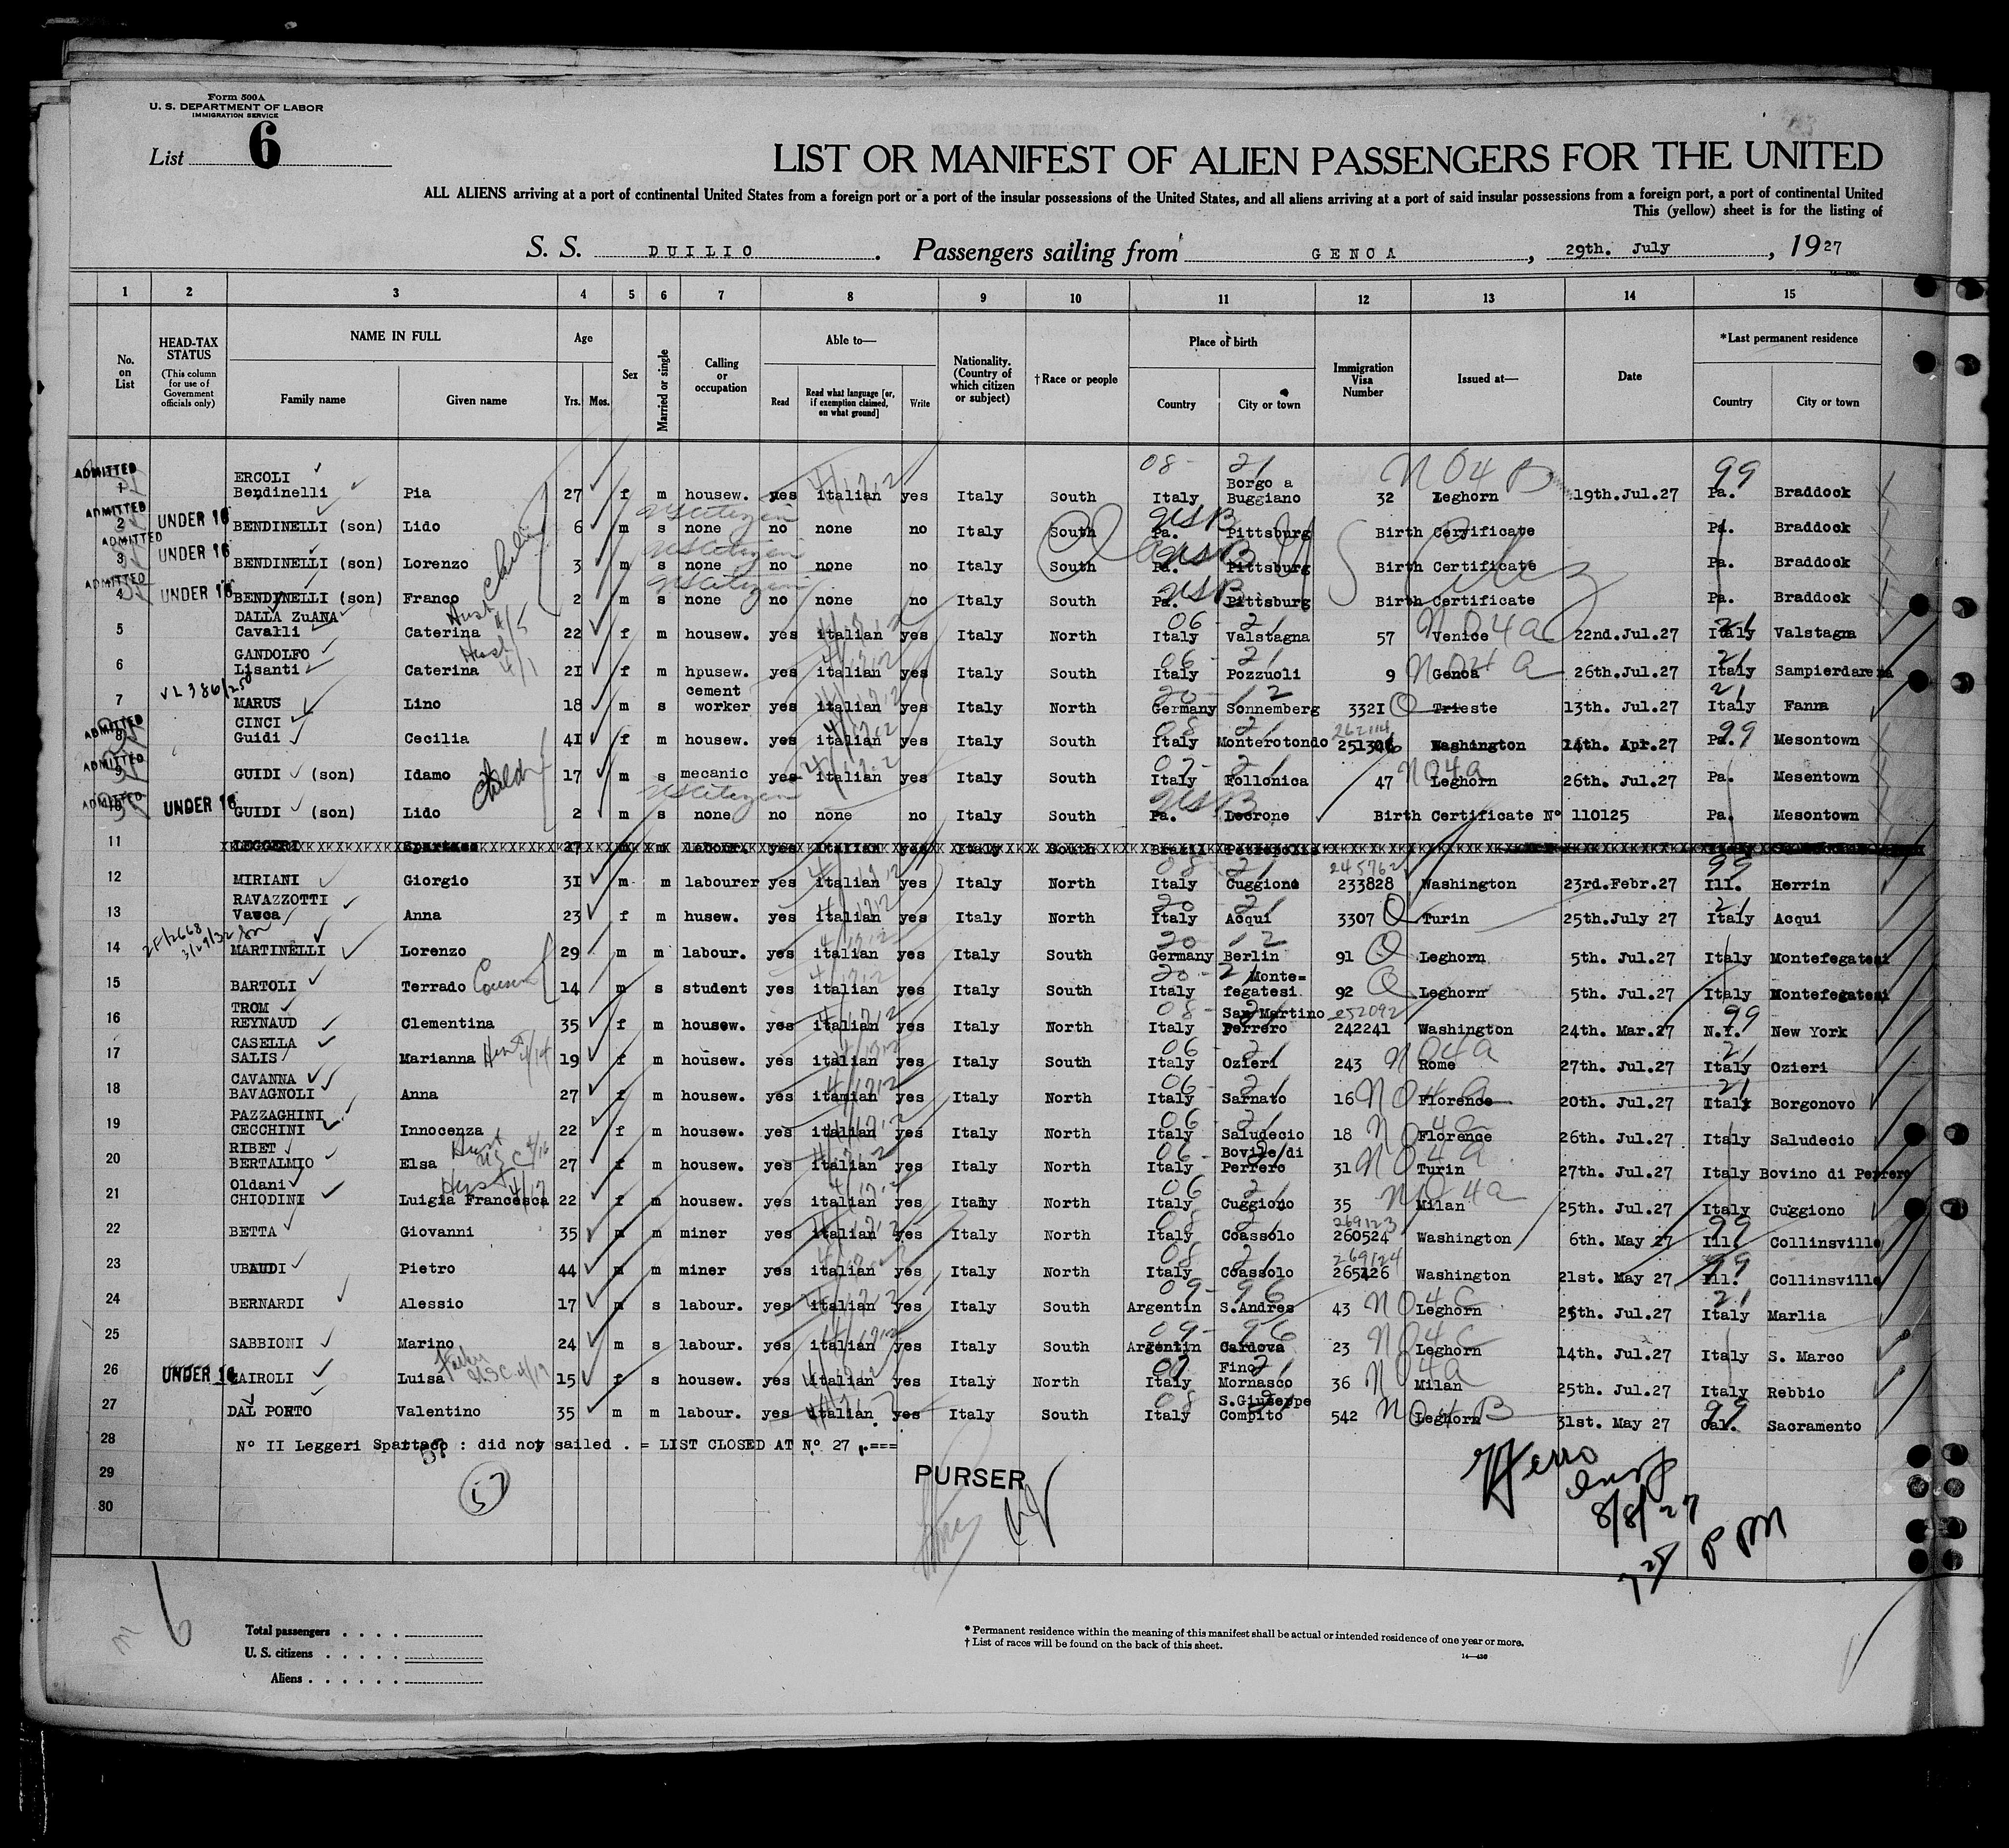 Form 500A
U. S. DEPARTMENT OF LABOR
IMMIGRATION SERVICE
List 6
LIST OR MANIFEST OF ALIEN PASSENGERS FOR THE UNITED
ALL ALIENS arriving at a port of continental United States from a foreign port or a port of the insular possessions of the United States, and all aliens arriving at a port of said insular possessions from a foreign port, a port of continental United
This (yellow) sheet is for the listing of
S. S. DUILIO. Passengers sailing from GENOA, 29th. July, 1927
1 2 3 4 5 6 7 8 9 10 11 12 13 14 15
No. on List
HEAD-TAX STATUS (This column for use of Government officials only)
NAME IN FULL
Family name Given name
Age
Yrs. Mos.
Sex
Married or single
Calling or occupation
Able to—
Read
Read what language [or, if exemption claimed, on what ground]
Write
Nationality. (Country of which citizen or subject)
†Race or people
Place of birth
Country City or town
Immigration Visa Number
Issued at—
Date
*Last permanent residence
Country City or town
08- 21 N04B 99
ADMITTED ERCOLI Borgo a
1 Bendinelli Pia 27 f m housew. yes italian yes Italy South Italy Buggiano 32 Leghorn 19th.Jul.27 Pa. Braddock
ADMITTED US citizen USB
2 UNDER 16 BENDINELLI (son) Lido 6 m s none no none no Italy South Pa. Pittsburg Birth Certificate Pa. Braddock
ADMITTED US citizen USB
3 UNDER 16 BENDINELLI (son) Lorenzo 3 m s none no none no Italy South Pa. Pittsburg Birth Certificate Pa. Braddock
ADMITTED US citizen USB
4 UNDER 16 BENDINELLI (son) Franco 2 m s none no none no Italy South Pa. Pittsburg Birth Certificate Pa. Braddock
DALLA ZuANA Husb 4/5 06- 21 N04a 21
5 Cavalli Caterina 22 f m housew. yes italian yes Italy North Italy Valstagna 57 Venice 22nd.Jul.27 Italy Valstagna
GANDOLFO Husb 4/1 06- 21 N04a 21
6 Lisanti Caterina 21 f m hpusew. yes italian yes Italy South Italy Pozzuoli 9 Genoa 26th.Jul.27 Italy Sampierdarena
cement 20- 12 21
7 MARUS Lino 18 m s worker yes italian yes Italy North Germany Sonnemberg 3321 Q Trieste 13th. Jul.27 Italy Fanna
ADMITTED CINCI 08 21 99
8 Guidi Cecilia 41 f m housew. yes italian yes Italy South Italy Monterotondo Washington 14th. Apr.27 Pa. Mesontown
ADMITTED 07- 21 N04a
9 GUIDI (son) Idamo 17 m s mecanic yes italian yes Italy South Italy Follonica 47 Leghorn 26th. Jul.27 Pa. Mesentown
ADMITTED US citizen USB
10 UNDER 16 GUIDI (son) Lido 2 m s none no none no Italy South Pa. Lecrone Birth Certificate N° 110125 Pa. Mesontown
11 LEGGERI Spartaco 27 m m labour. yes italian yes Italy South
08- 21 245762 99
12 MIRIANI Giorgio 31 m m labourer yes italian yes Italy North Italy Cuggione 233828 Washington 23rd.Febr.27 Ill. Herrin
RAVAZZOTTI 20 21 21
13 Vasca Anna 23 f m husew. yes italian yes Italy North Italy Acqui 3307 Q Turin 25th.July 27 Italy Acqui
20 12
14 MARTINELLI Lorenzo 29 m m labour. yes italian yes Italy South Germany Berlin 91 Q Leghorn 5th. Jul.27 Italy Montefegatesi
20- 21 Monte=
15 BARTOLI Terrado Cousin 14 m s student yes italian yes Italy South Italy fegatesi 92 Q Leghorn 5th. Jul.27 Italy Montefegatesi
TROM 08- San Martino 252092 99
16 REYNAUD Clementina 35 f m housew. yes italian yes Italy North Italy Perrero 242241 Washington 24th. Mar.27 N.Y. New York
CASELLA 06 21 N04a 21
17 SALIS Marianna 19 f m housew. yes italian yes Italy South Italy Ozieri 243 Rome 27th. Jul.27 Italy Ozieri
CAVANNA 06- 21 N04a 21
18 BAVAGNOLI Anna 27 f m housew. yes itamian yes Italy North Italy Sarnato 16 Florence 20th. Jul.27 Italy Borgonovo
PAZZAGHINI 06- 21 N04a
19 CECCHINI Innocenza 22 f m housew. yes italian yes Italy North Italy Saludecio 18 Florence 26th. Jul.27 Italy Saludecio
RIBET 06- Bovile/di N04a
20 BERTALMIO Elsa 27 f m housew. yes italian yes Italy North Italy Perrero 31 Turin 27th. Jul.27 Italy Bovino di Perrero
Oldani 06 21 N04a
21 CHIODINI Luigia Francesca 22 f m housew. yes italian yes Italy North Italy Cuggiono 35 Milan 25th. Jul.27 Italy Cuggiono
08 2 269123 99
22 BETTA Giovanni 35 m m miner yes italian yes Italy North Italy Coassolo 260524 Washington 6th. May 27 Ill. Collinsville
08 21 269124 99
23 UBAUDI Pietro 44 m m miner yes italian yes Italy North Italy Coassolo 265426 Washington 21st. May 27 Ill. Collinsville
09- 96 N04C 21
24 BERNARDI Alessio 17 m s labour. yes italian yes Italy South Argentin S.Andres 43 Leghorn 25th. Jul.27 Italy Marlia
09- 96 N04C
25 SABBIONI Marino 24 m s labour. yes italian yes Italy South Argentin Cordova 23 Leghorn 14th. Jul.27 Italy S. Marco
07 Fino 21 N04a
26 UNDER 16 ZAIROLI Luisa 15 f s housew. yes italian yes Italy North Italy Mornasco 36 Milan 25th. Jul.27 Italy Rebbio
08 S.Giuseppe 99
27 DAL PORTO Valentino 35 m m labour. yes italian yes Italy South Italy Compito 542 N04B Leghorn 31st. May 27 Cal. Sacramento
28 N° II Leggeri Spartaco : did not sailed . = LIST CLOSED AT N° 27 .===
29
30
57
PURSER
8/8/27
6
Total passengers
U. S. citizens
Aliens
* Permanent residence within the meaning of this manifest shall be actual or intended residence of one year or more.
† List of races will be found on the back of this sheet.
14—430